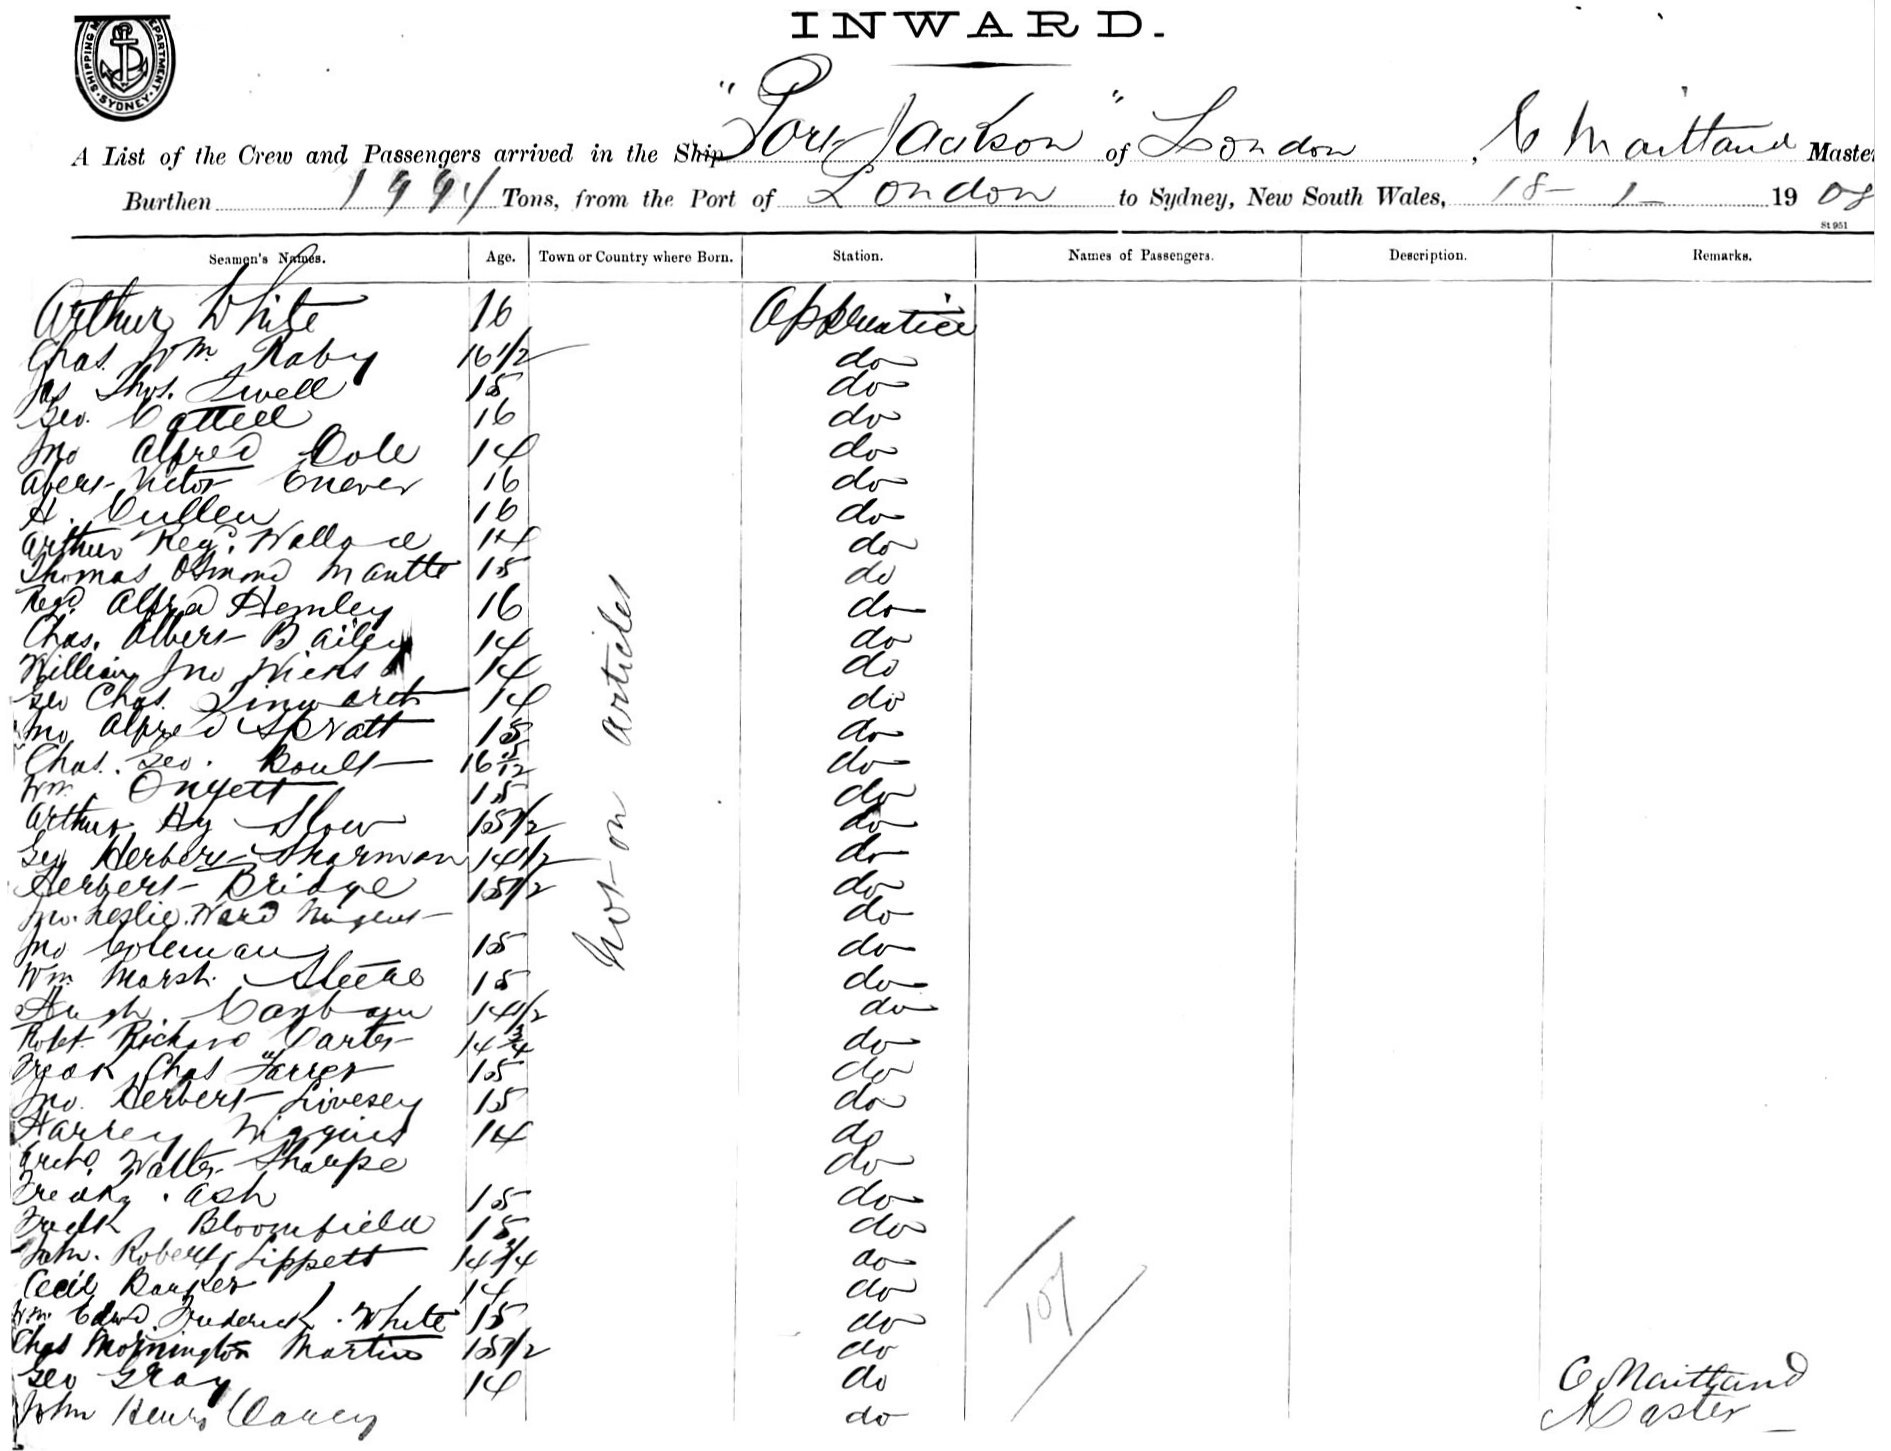 INWARD.
SHIPPING DEPARTMENT SYDNEY
A List of the Crew and Passengers arrived in the Ship "Port Jackson" of London, C Maitland Master
Burthen 1994 Tons, from the Port of London to Sydney, New South Wales, 18 - 1 - 1908
St 951
Seamen's Names. Age. Town or Country where Born. Station. Names of Passengers. Description. Remarks.
Arthur White 16 Apprentice
Chas. Wm. Raby 16 1/2 do
Jas Thos. Ewell 15 do
Geo. Cattell 16 do
Jno Alfred Cole 14 do
Albert Victor Enever 16 do
H. Cullen 16 do
Arthur Reg. Wallace 14 do
Thomas Osmond Mantle 15 do
Regd. Alfred Hemley 16 do
Chas. Albert Bailey 14 do
William Jno Wicks 14 do
Geo Chas. 14 do
Jno Alfred Spratt 15 do
Chas. Geo. Boult 16 5/12 do
Wm. Onyett 15 do
Arthur Hy Slow 15 1/2 do
Geo Herbert Sharman 14 1/2 do
Herbert Bridge 15 1/2 do
Jno. Leslie Ward Nugent do
Jno Coleman 15 do
Wm. Marsh. Steele 15 do
Hugh 14 1/2 do
Robt. Richard Carter 14 3/4 do
Fredk Chas Farrer 15 do
Jno. Herbert Livesey 15 do
Harrey Wiggins 14 do
Archd. Walter Sharpe do
Fredk. Ash 15 do
Fredk Bloomfield 15 do
John. Robert Lippett 14 3/4 do
Cecil Barker 14 do
Wm. Edwd. Frederick White 15 do
Chas Mornington Martin 15 1/2 do
Geo Gray 14 do
John Henry do
Not on articles
107
C Maitland
Master